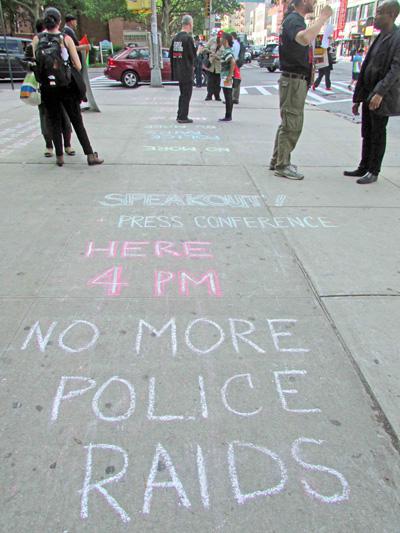 NO MORE
SPEAKOUT!
+ PRESS CONFERENCE
HERE
4 PM
NO MORE
POLICE
RAIDS